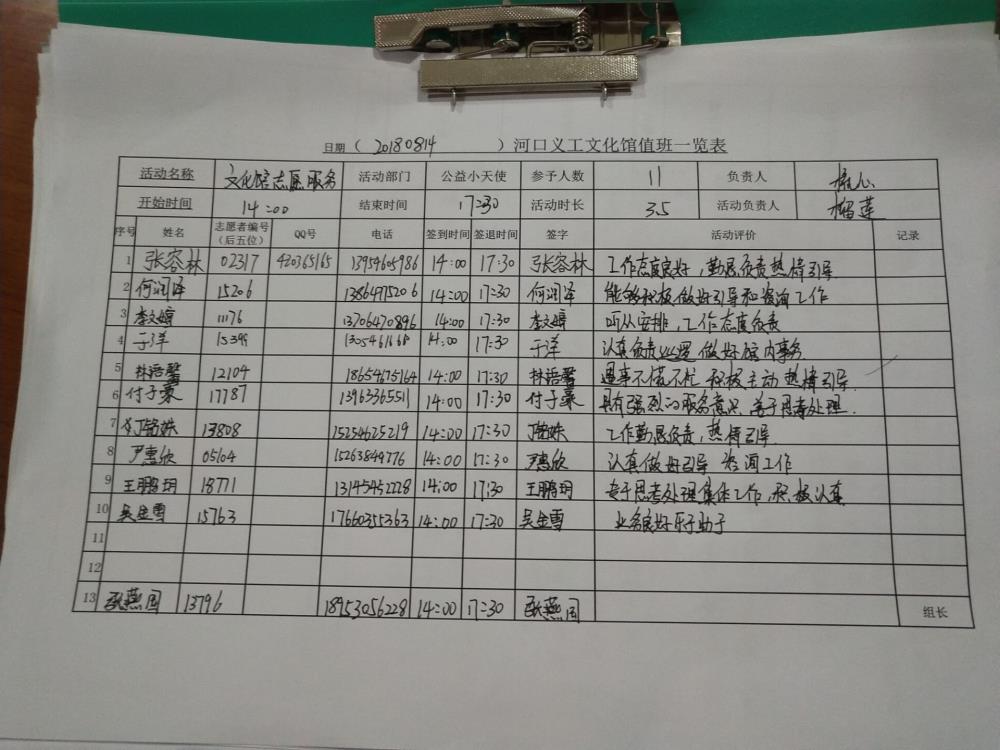 日期（ 20180814 ）河口义工文化馆值班一览表
活动名称 文化馆志愿服务 活动部门 公益小天使 参予人数 11 负责人
开始时间 14:00 结束时间 17:30 活动时长 3.5 活动负责人 榴莲
序号 姓名 志愿者编号（后五位） QQ号 电话 签到时间 签退时间 签字 活动评价 记录
1 张容林 02317 420365165 13954605986 14:00 17:30 张容林 工作态度良好，勤恳负责热情引导
2 何润泽 15206 13864775206 14:00 17:30 何润泽 能够积极做好引导和咨询工作
3 李文婷 11176 13706470896 14:00 17:30 李文婷 听从安排，工作态度负责
4 于洋 15399 14:00 17:30 于洋 认真负责处理做好馆内事务
5 林语馨 12104 18654675164 14:00 17:30 林语馨 遇事不慌不忙 积极主动 热情引导
6 付子豪 17787 13963365511 14:00 17:30 付子豪 具有强烈的服务意识，善于思考处理.
7 13808 15254625219 14:00 17:30 工作勤恳负责，热情引导
8 尹惠欣 05104 15263849776 14:00 17:30 尹惠欣 认真做好引导 咨询工作
9 王鹏玥 18771 13145452228 14:00 17:30 王鹏玥 善于思考处理集体工作，积极认真
10 吴金雪 15763 17660355363 14:00 17:30 吴金雪 业务良好乐于助于
11
12
13 张燕国 13796 18953056228 14:00 17:30 张燕国 组长